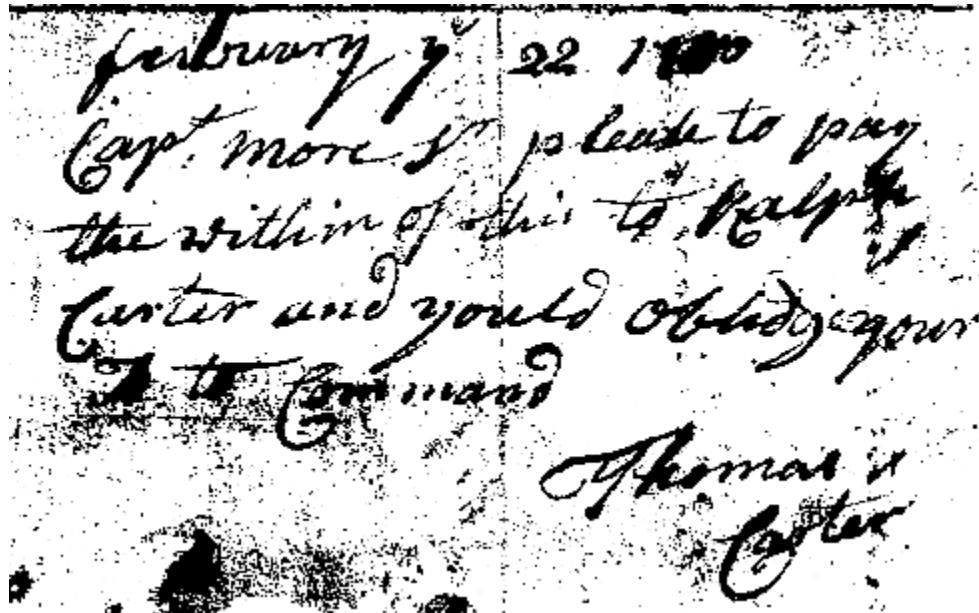 february ye 22
Capt. more Sr please to pay
the within of this to Ralph
Carter and yould oblidge your
to Command
Thomas
Carter